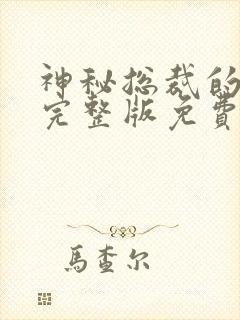 神秘总裁的
完整版免費
馬查尔